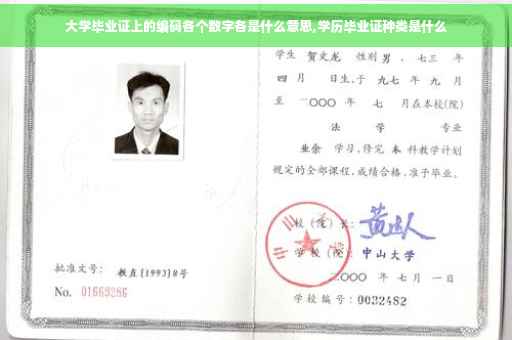 大学毕业证上的编码各个数字各是什么意思,学历毕业证种类是什么
学生 贺文龙 性别 男 , 七三 年
四 月 日生,于 九七 年 九 月
至 二〇〇〇 年 七 月在本校(院)
法 学 专业
业余 学习,修完 本 科教学计划
规定的全部课程,成绩合格,准予毕业。
校(院)长:
学校(院): 中山大学
二〇〇〇 年 七 月 一 日
学校编号: 0032482
批准文号: 教直[1993]8号
No. 01669286